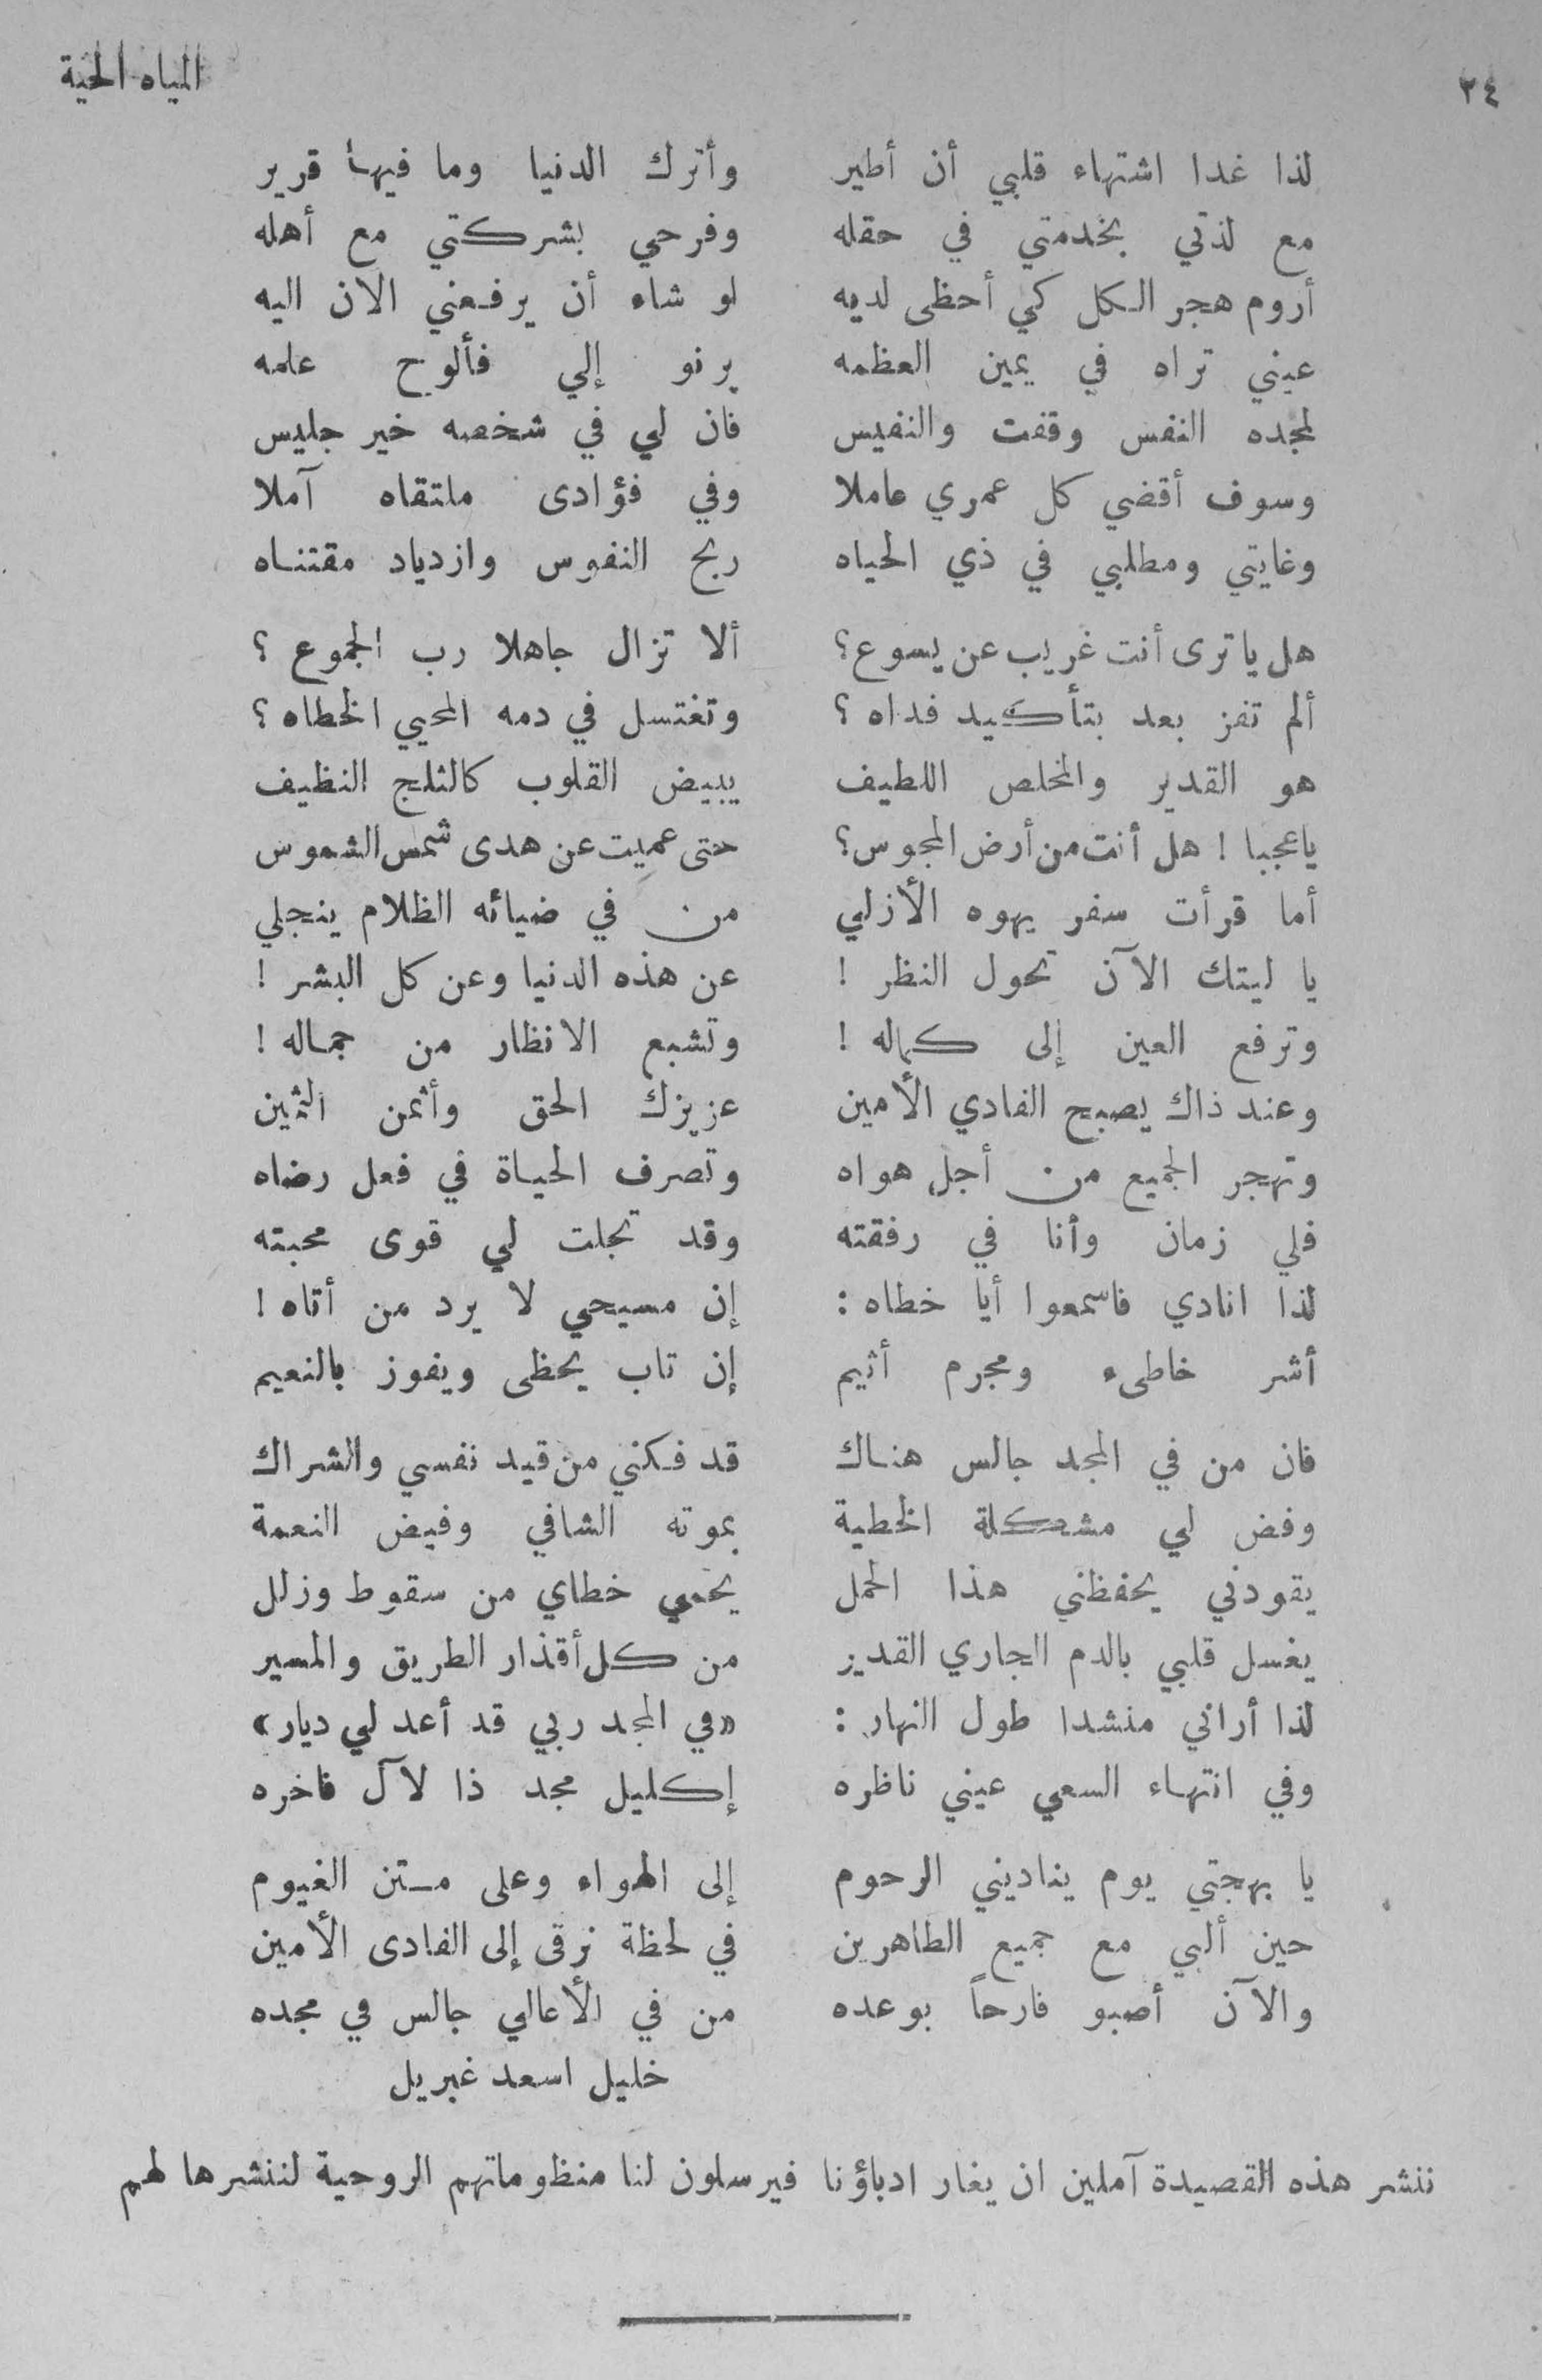 ٢٤ المياه الحية
لذا غدا اشتهاء قلبي أن أطير وأترك الدنيا وما فيها قرير
مع لذتي بخدمتي في حقله وفرحي بشركتي مع أهله
أروم هجر الكل كي أحظى لديه لو شاء أن يرفعني الان اليه
عيني تراه في يمين العظمه يرنو إلي فألوح علمه
لمجده النفس وقفت والنفيس فان لي في شخصه خير جليس
وسوف أقضي كل عمري عاملا وفي فؤادى ملتقاه آملا
وغايتي ومطلبي في ذي الحياه ربح النفوس وازدياد مقتناه
هل يا ترى أنت غريب عن يسوع؟ ألا تزال جاهلا رب الجموع ؟
ألم تفز بعد بتأكيد فداه ؟ وتغتسل في دمه المحيي الخطاه ؟
هو القدير والمخلص اللطيف يبيض القلوب كالثلج النظيف
يا عجبا ! هل أنت من أرض المجوس؟ حتى عميت عن هدى شمس الشموس
أما قرأت سفر يهوه الأزلي من في ضيائه الظلام ينجلي
يا ليتك الآن تحول النظر ! عن هذه الدنيا وعن كل البشر !
وترفع العين إلى كماله ! وتشبع الانظار من جماله !
وعند ذاك يصبح الفادي الأمين عزيزك الحق وأثمن الثمين
وتهجر الجميع من أجل هواه وتصرف الحياة في فعل رضاه
فلي زمان وأنا في رفقته وقد تجلت لي قوى محبته
لذا انادي فاسمعوا أيا خطاه : إن مسيحي لا يرد من أتاه !
أشر خاطىء ومجرم أثيم إن تاب يحظى ويفوز بالنعيم
فان من في المجد جالس هناك قد فكني من قيد نفسي والشراك
وفض لي مشكلة الخطية بموته الشافي وفيض النعمة
يقودني يحفظني هذا الحمل يحمي خطاي من سقوط وزلل
يغسل قلبي بالدم الجاري القدير من كل أقذار الطريق والمسير
لذا أراني منشدا طول النهار : «في المجد ربي قد أعد لي ديار»
وفي انتهاء السعي عيني ناظره إكليل مجد ذا لآل فاخره
يا بهجتي يوم يناديني الرحوم إلى الهواء وعلى متن الغيوم
حين ألبي مع جميع الطاهرين في لحظة نرقى إلى الفادى الأمين
والآن أصبو فارحاً بوعده من في الأعالي جالس في مجده
خليل اسعد غبريل
ننشر هذه القصيدة آملين ان يغار ادباؤنا فيرسلون لنا منظوماتهم الروحية لننشرها لهم